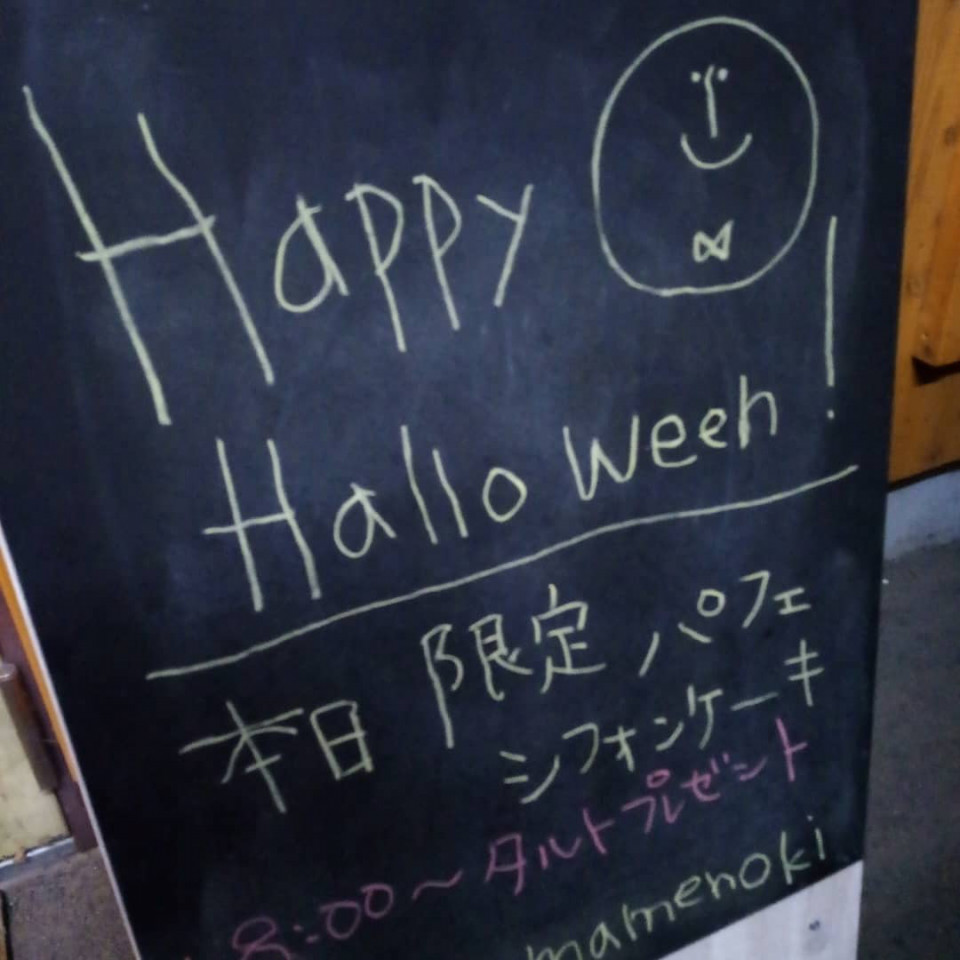 Happy
Halloween!
本日 限定 パフェ
シフォンケーキ
8:00～タルトプレゼント
mamenoki